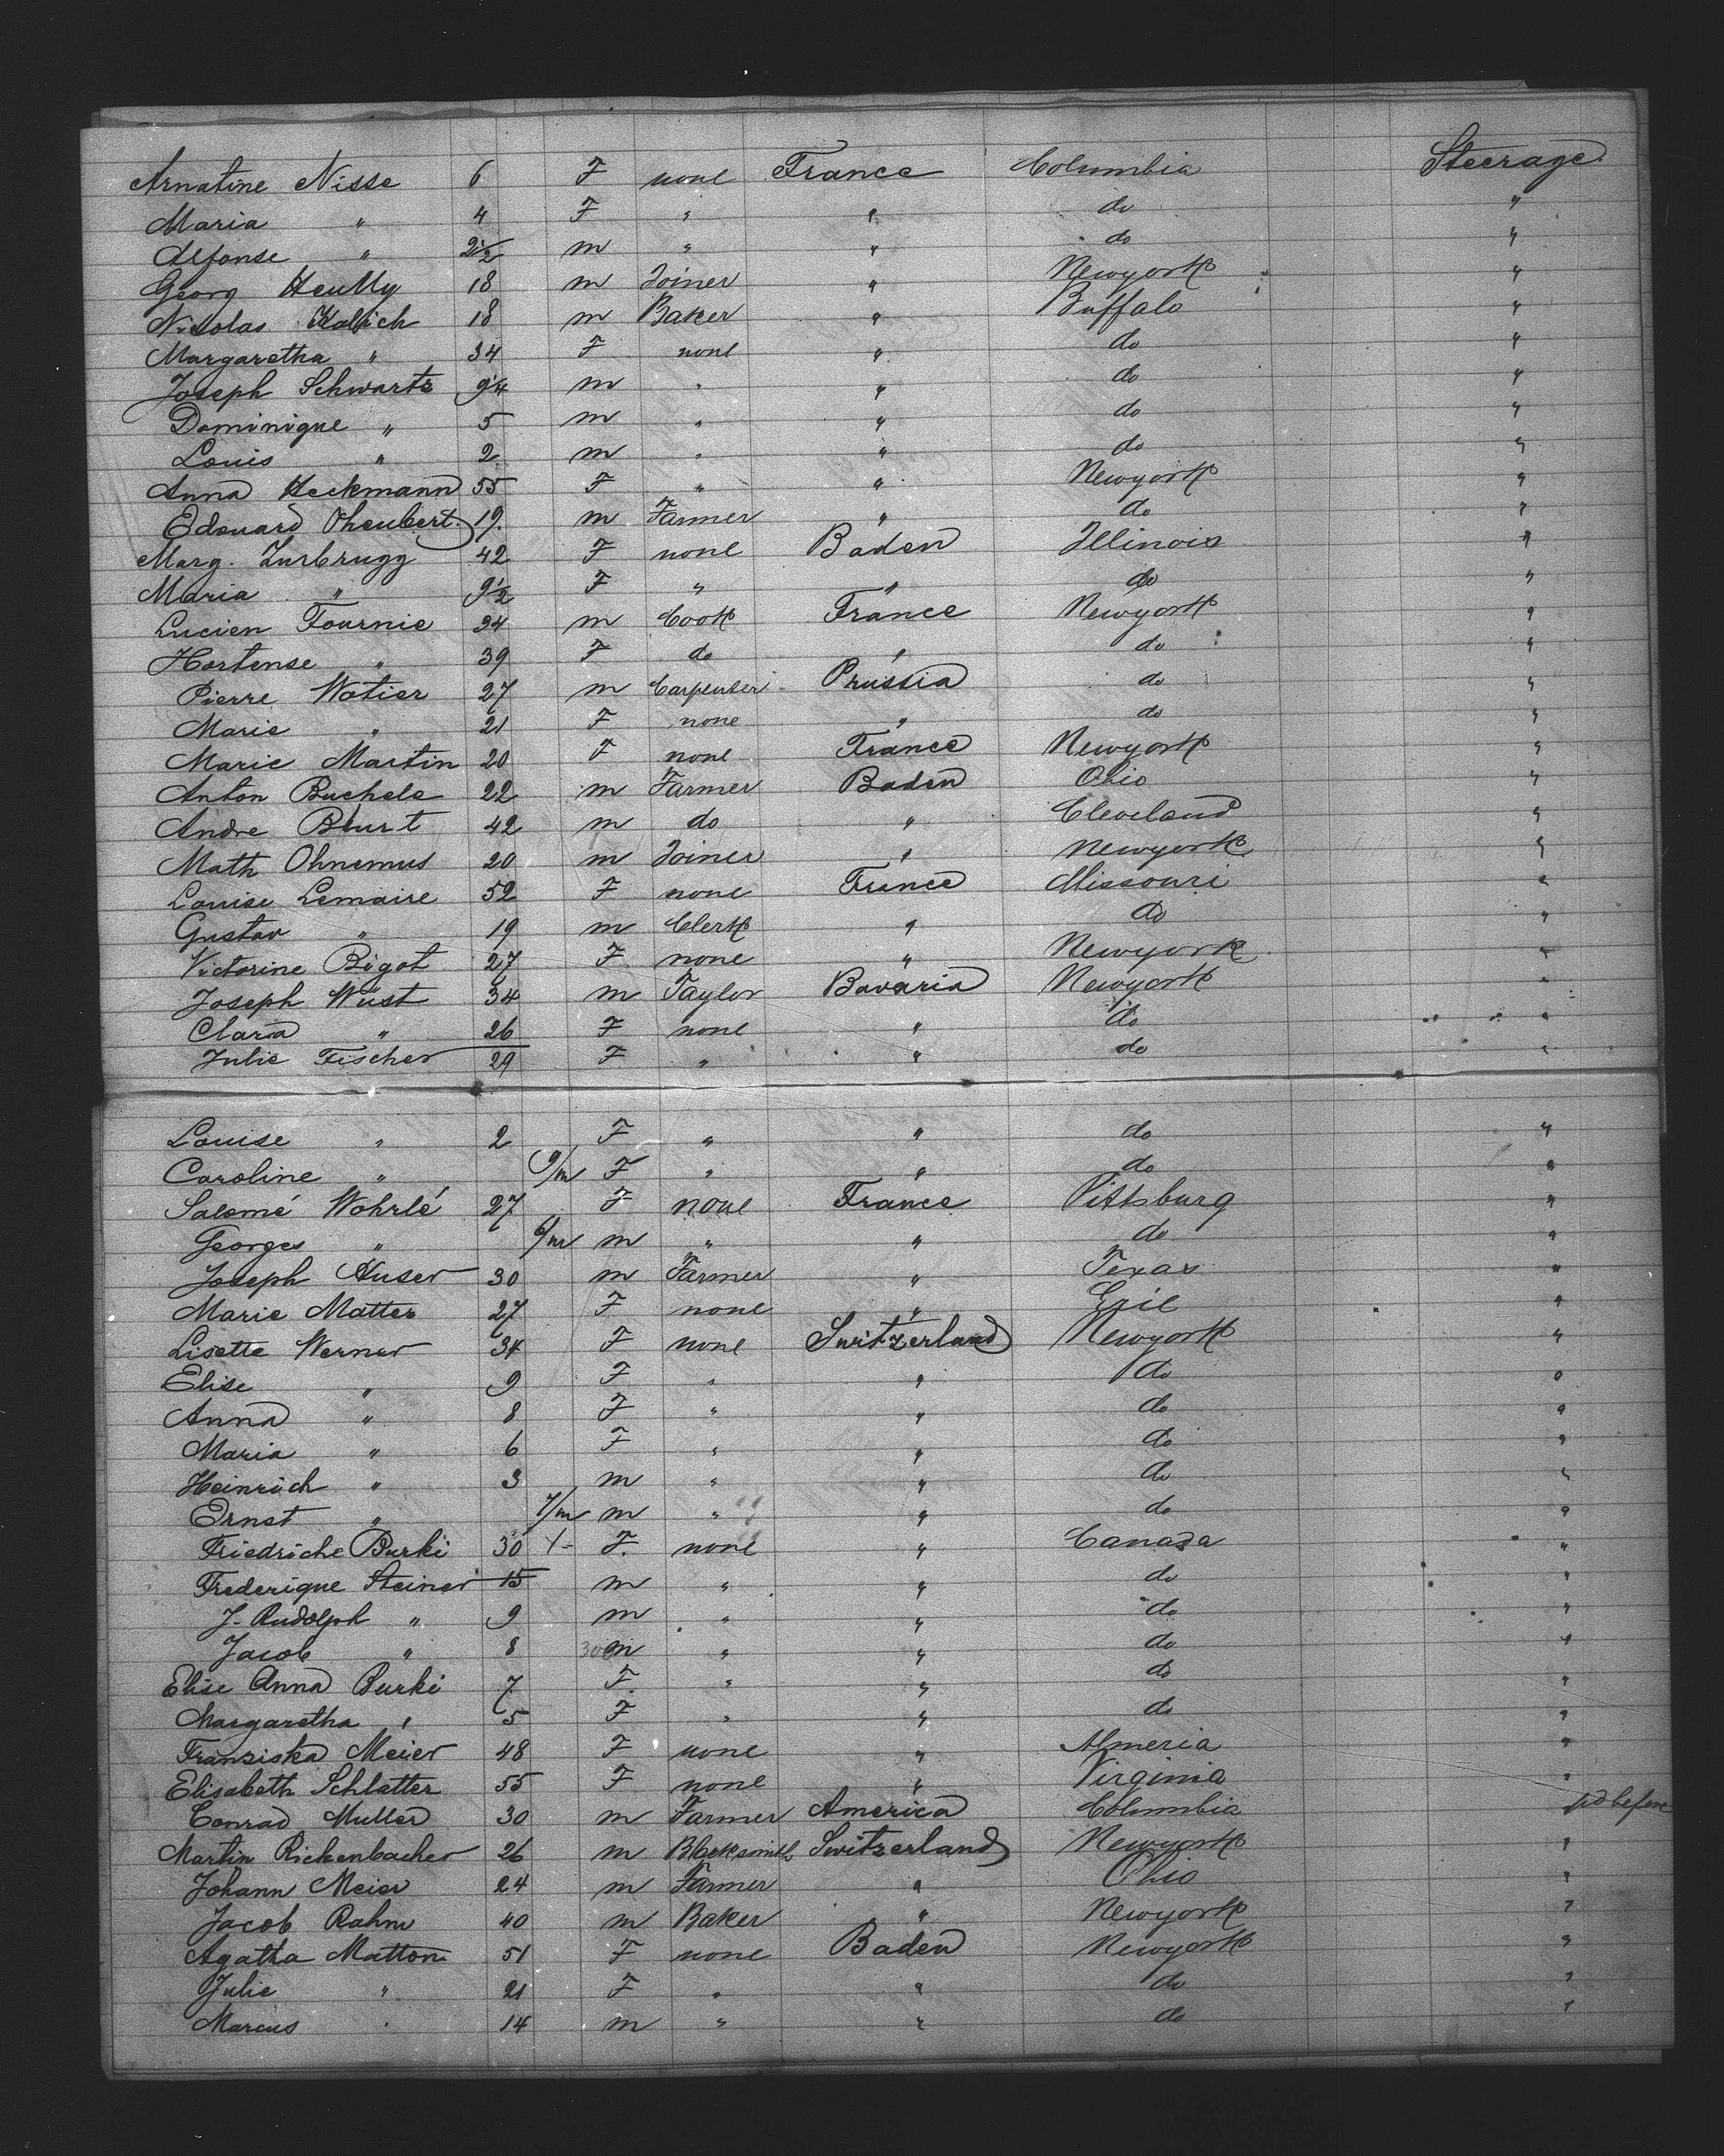 Arnatine Nisse 6 F none France Columbia Steerage.
Maria " 4 F " " do "
Alfonse " 2½ m " " do "
Georg Heully 18 m Joiner " Newyork "
Nicolas Kalbich 18 m Baker " Buffalo "
Margaretha " 34 F none " do "
Joseph Schwartz 9¼ m " " do "
Dominique " 5 m " " do "
Louis " 2 m " " do "
Anna Heckmann 55 F " " Newyork "
Edouard 19. m Farmer " do "
Marg. Zurbrugg 42 F none Baden Illinois "
Maria " 9½ F " " do "
Lucien Fournie 34 m Cook France Newyork "
Hortense " 39 F do " do "
Pierre Watier 27 m Carpenter Prussia do "
Marie " 21 F none " do "
Marie Martin 20 F none France Newyork "
Anton Buchele 22 m Farmer Baden Ohio "
Andre 42 m do " Cleveland "
Math Ohnemus 20 m Joiner " Newyork "
Louise Lemaire 52 F none France Missouri "
Gustav " 19 m Clerk " do "
Victorine Bigot 27 F none " Newyork "
Joseph Wüst 34 m Taylor Bavaria Newyork "
Clara " 26 F none " do "
Julie Fischer 29 F " " do "
Louise " 2 F " " do "
Caroline " 9/m F " " do "
Salomé Wohrlé 27 F none France Pittsburg "
Georges " 6/m m " " do "
Joseph Huser 30 m Farmer " Texas "
Marie Matter 27 F none " Erie "
Lisette Werner 34 F none Switzerland Newyork "
Elise " 9 F " " do "
Anna " 8 F " " do "
Maria " 6 F " " do "
Heinrich " 3 m " " do "
Ernst " 7/m m " " do "
Friedriche Burki 30 F. none " Canada "
Frederique Steiner 15 m " " do "
J. Rudolph " 9 m " " do "
Jacob " 8 m " " do "
Elise Anna Burki 7 F. " " do "
Margaretha " 5 F " " do "
Franziska Meier 48 F none " Almeria "
Elisabeth Schlatter 55 F none " Virginia "
Conrad Muller 30 m Farmer America Columbia before
Martin Rickenbacher 26 m Blcksmith Switzerland Newyork "
Johann Meier 24 m Farmer " Ohio "
Jacob Rahm 40 m Baker " Newyork "
Agatha Matton 51 F none Baden Newyork "
Julie " 21 F " " do "
Marcus " 14 m " " do "